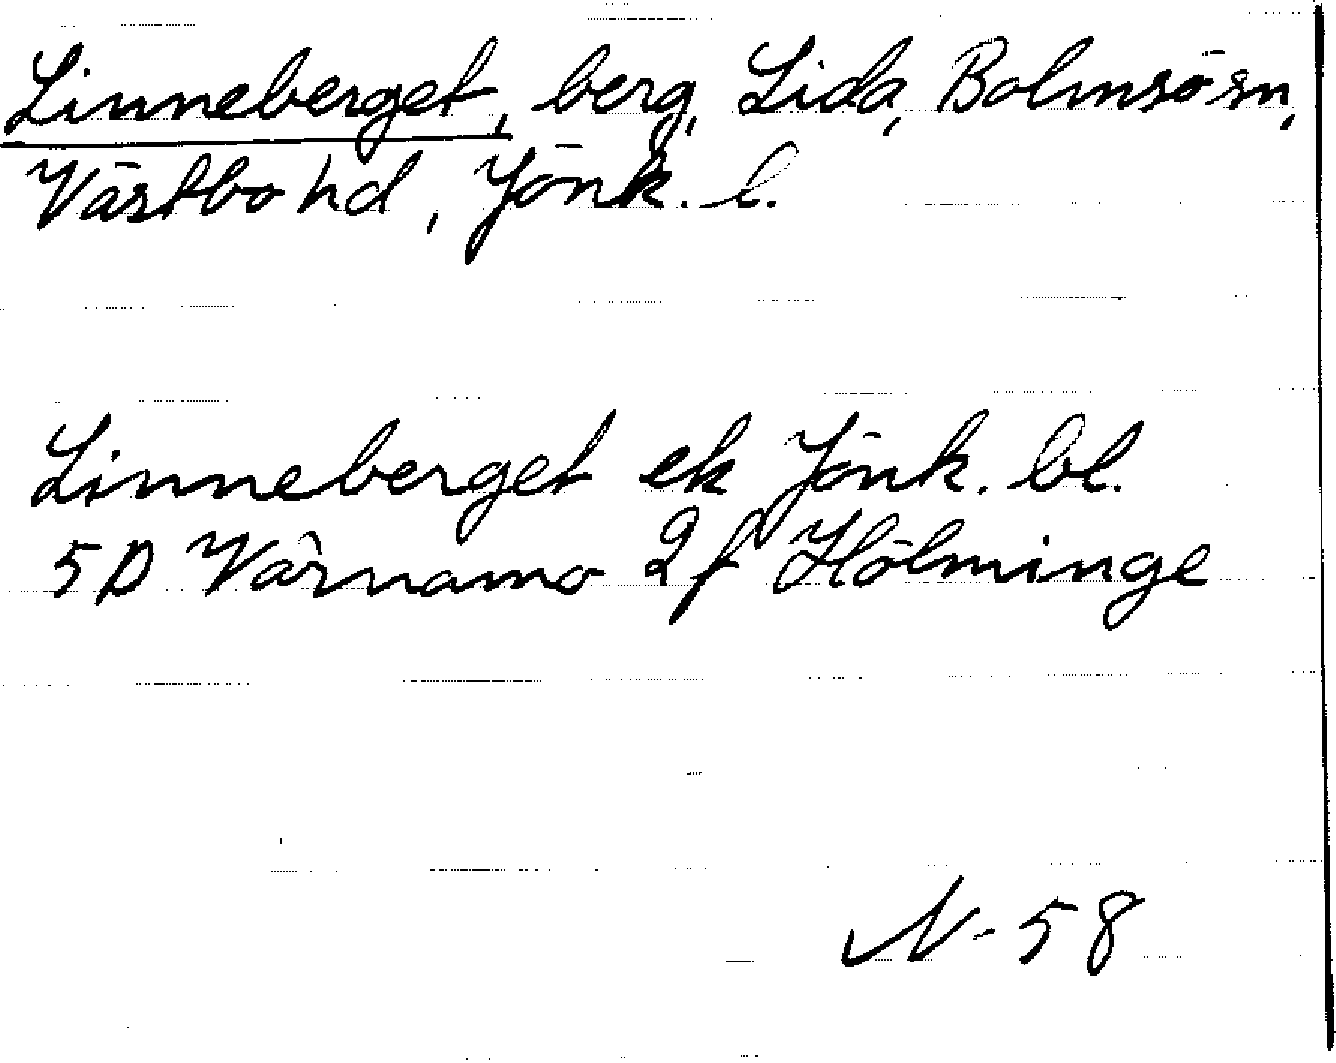 Linneberget, berg, Lida, Bolmsö sn,
Västbo hd, Jönk. l.
Linneberget ek Jönk. bl.
5D Värnamo 2f Hölminge
N-58